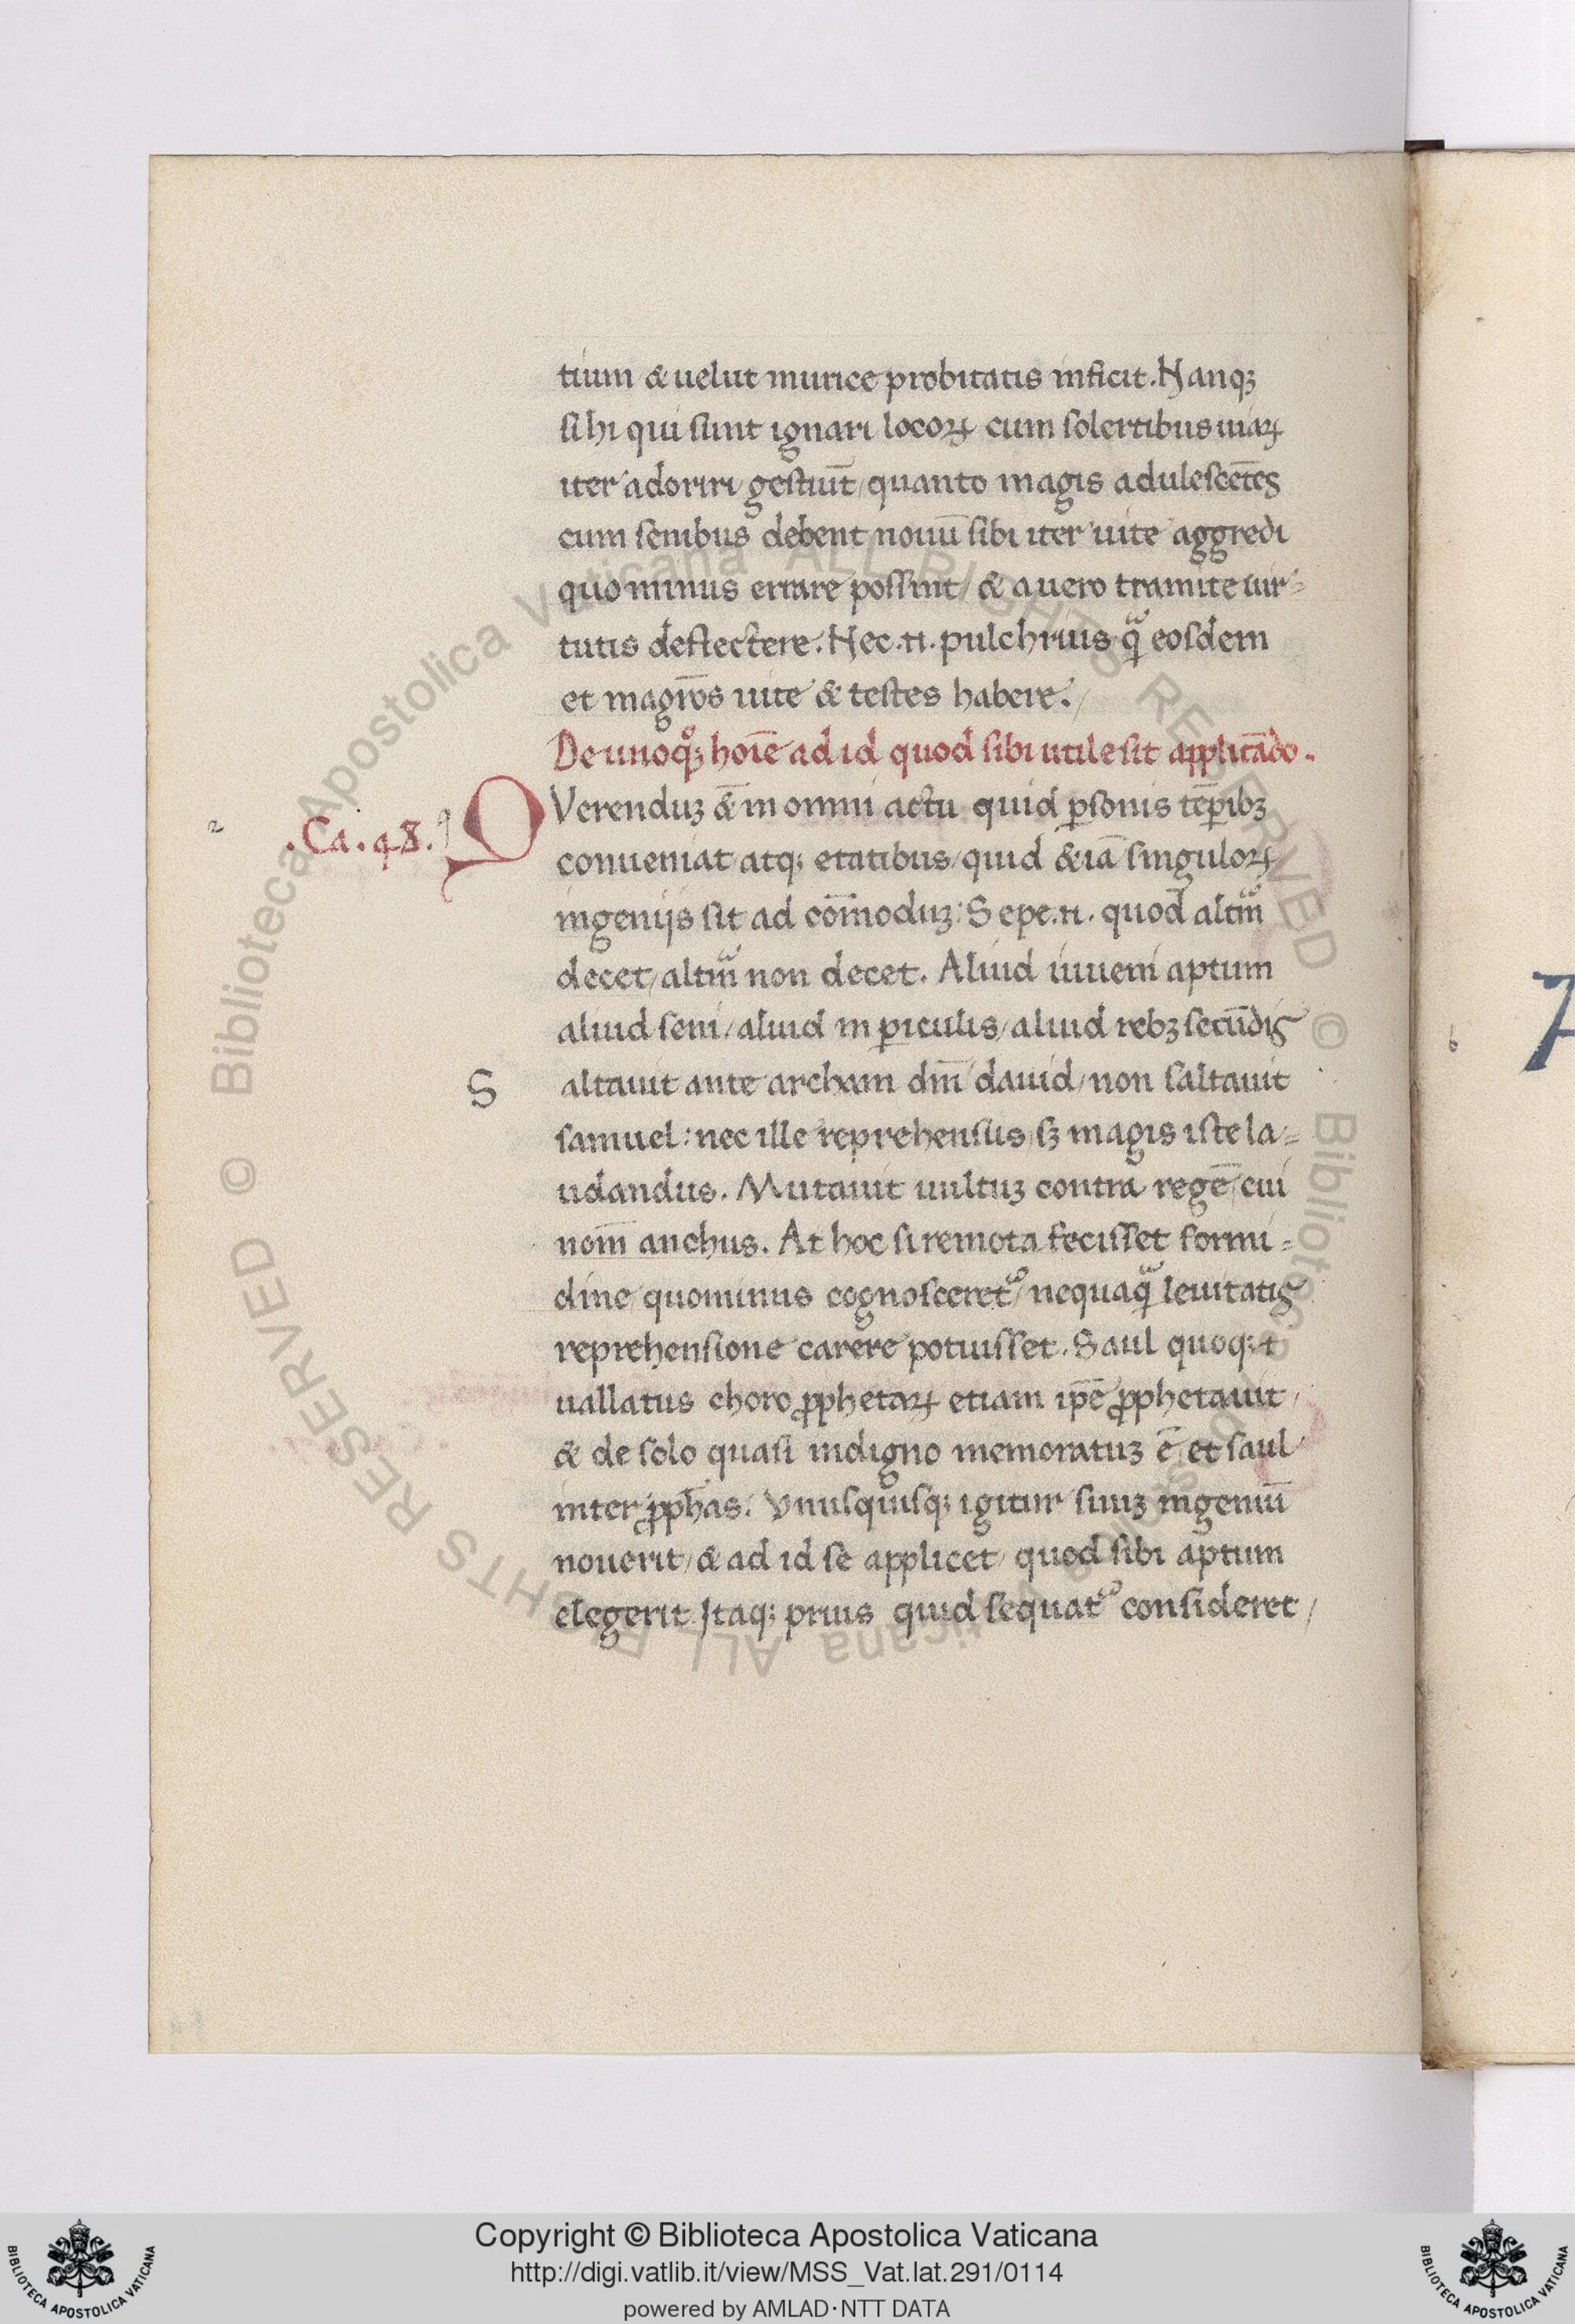 tium & uelut murice probitatis inficit. Nanqꝫ
si hi qui sunt ignari locoꝝ cum solertibus uiaꝝ
iter adoriri gestiūt / quanto magis adulescētes
cum senibus debent nouū sibi iter uite aggredi
quo minus errare possint / & a uero tramite uir=
tutis deflectere. Nec .n. pulchrius qͣ̄ eosdem
et magr̄os uite & testes habere. /
De unoqͦꝫ hoīe ad id quod sibi utile sit applicādo.
.Ca. 48. Q Verenduꝫ &̄ in omni actu quid ꝑsonis tēꝑibꝫ
conueniat atqꝫ etatibus / quid & iā singuloꝝ
ingenijs sit ad cōmoduꝫ: Sepe .n. quod altm̄ͣ
decet / altm̄ͣ non decet. Aliud iuueni aptum
aliud seni / aliud in ꝑiculis / aliud rebꝫ secūdis
S altauit ante archam dm̄ dauid / non saltauit
samuel: nec ille reprehensus / sꝫ magis iste la=
udandus. Mutauit uultuꝫ contra regē cui
nom̄ anchus. At hoc si remota fecisset formi=
dine / quominus cognosceret᷑ / nequaqͣ̄ leuitatis
reprehensione carere potuisset. Saul quoqꝫ
uallatus choro ꝓphetaꝝ etiam ip̄e ꝓphetauit /
& de solo quasi indigno memoratuꝫ ē / et saul
inter ꝓph̄as. Vnusquisqꝫ igitur suuꝫ ingeniū
nouerit / & ad id se applicet / quod sibi aptum
elegerit. Itaqꝫ prius quid sequat᷑ consideret /
A
© Biblioteca Apostolica Vaticana ALL RIGHTS RESERVED
© Biblioteca Apostolica Vaticana ALL RIGHTS RESERVED
Copyright © Biblioteca Apostolica Vaticana
http://digi.vatlib.it/view/MSS_Vat.lat.291/0114
powered by AMLAD·NTT DATA
BIBLIOTECA APOSTOLICA VATICANA
BIBLIOTECA APOSTOLICA VATICANA